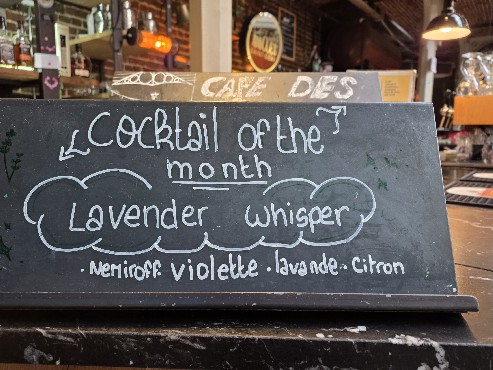 CAFE DES
Cocktail of the
month
Lavender Whisper
· Nemiroff · violette · lavande · Citron